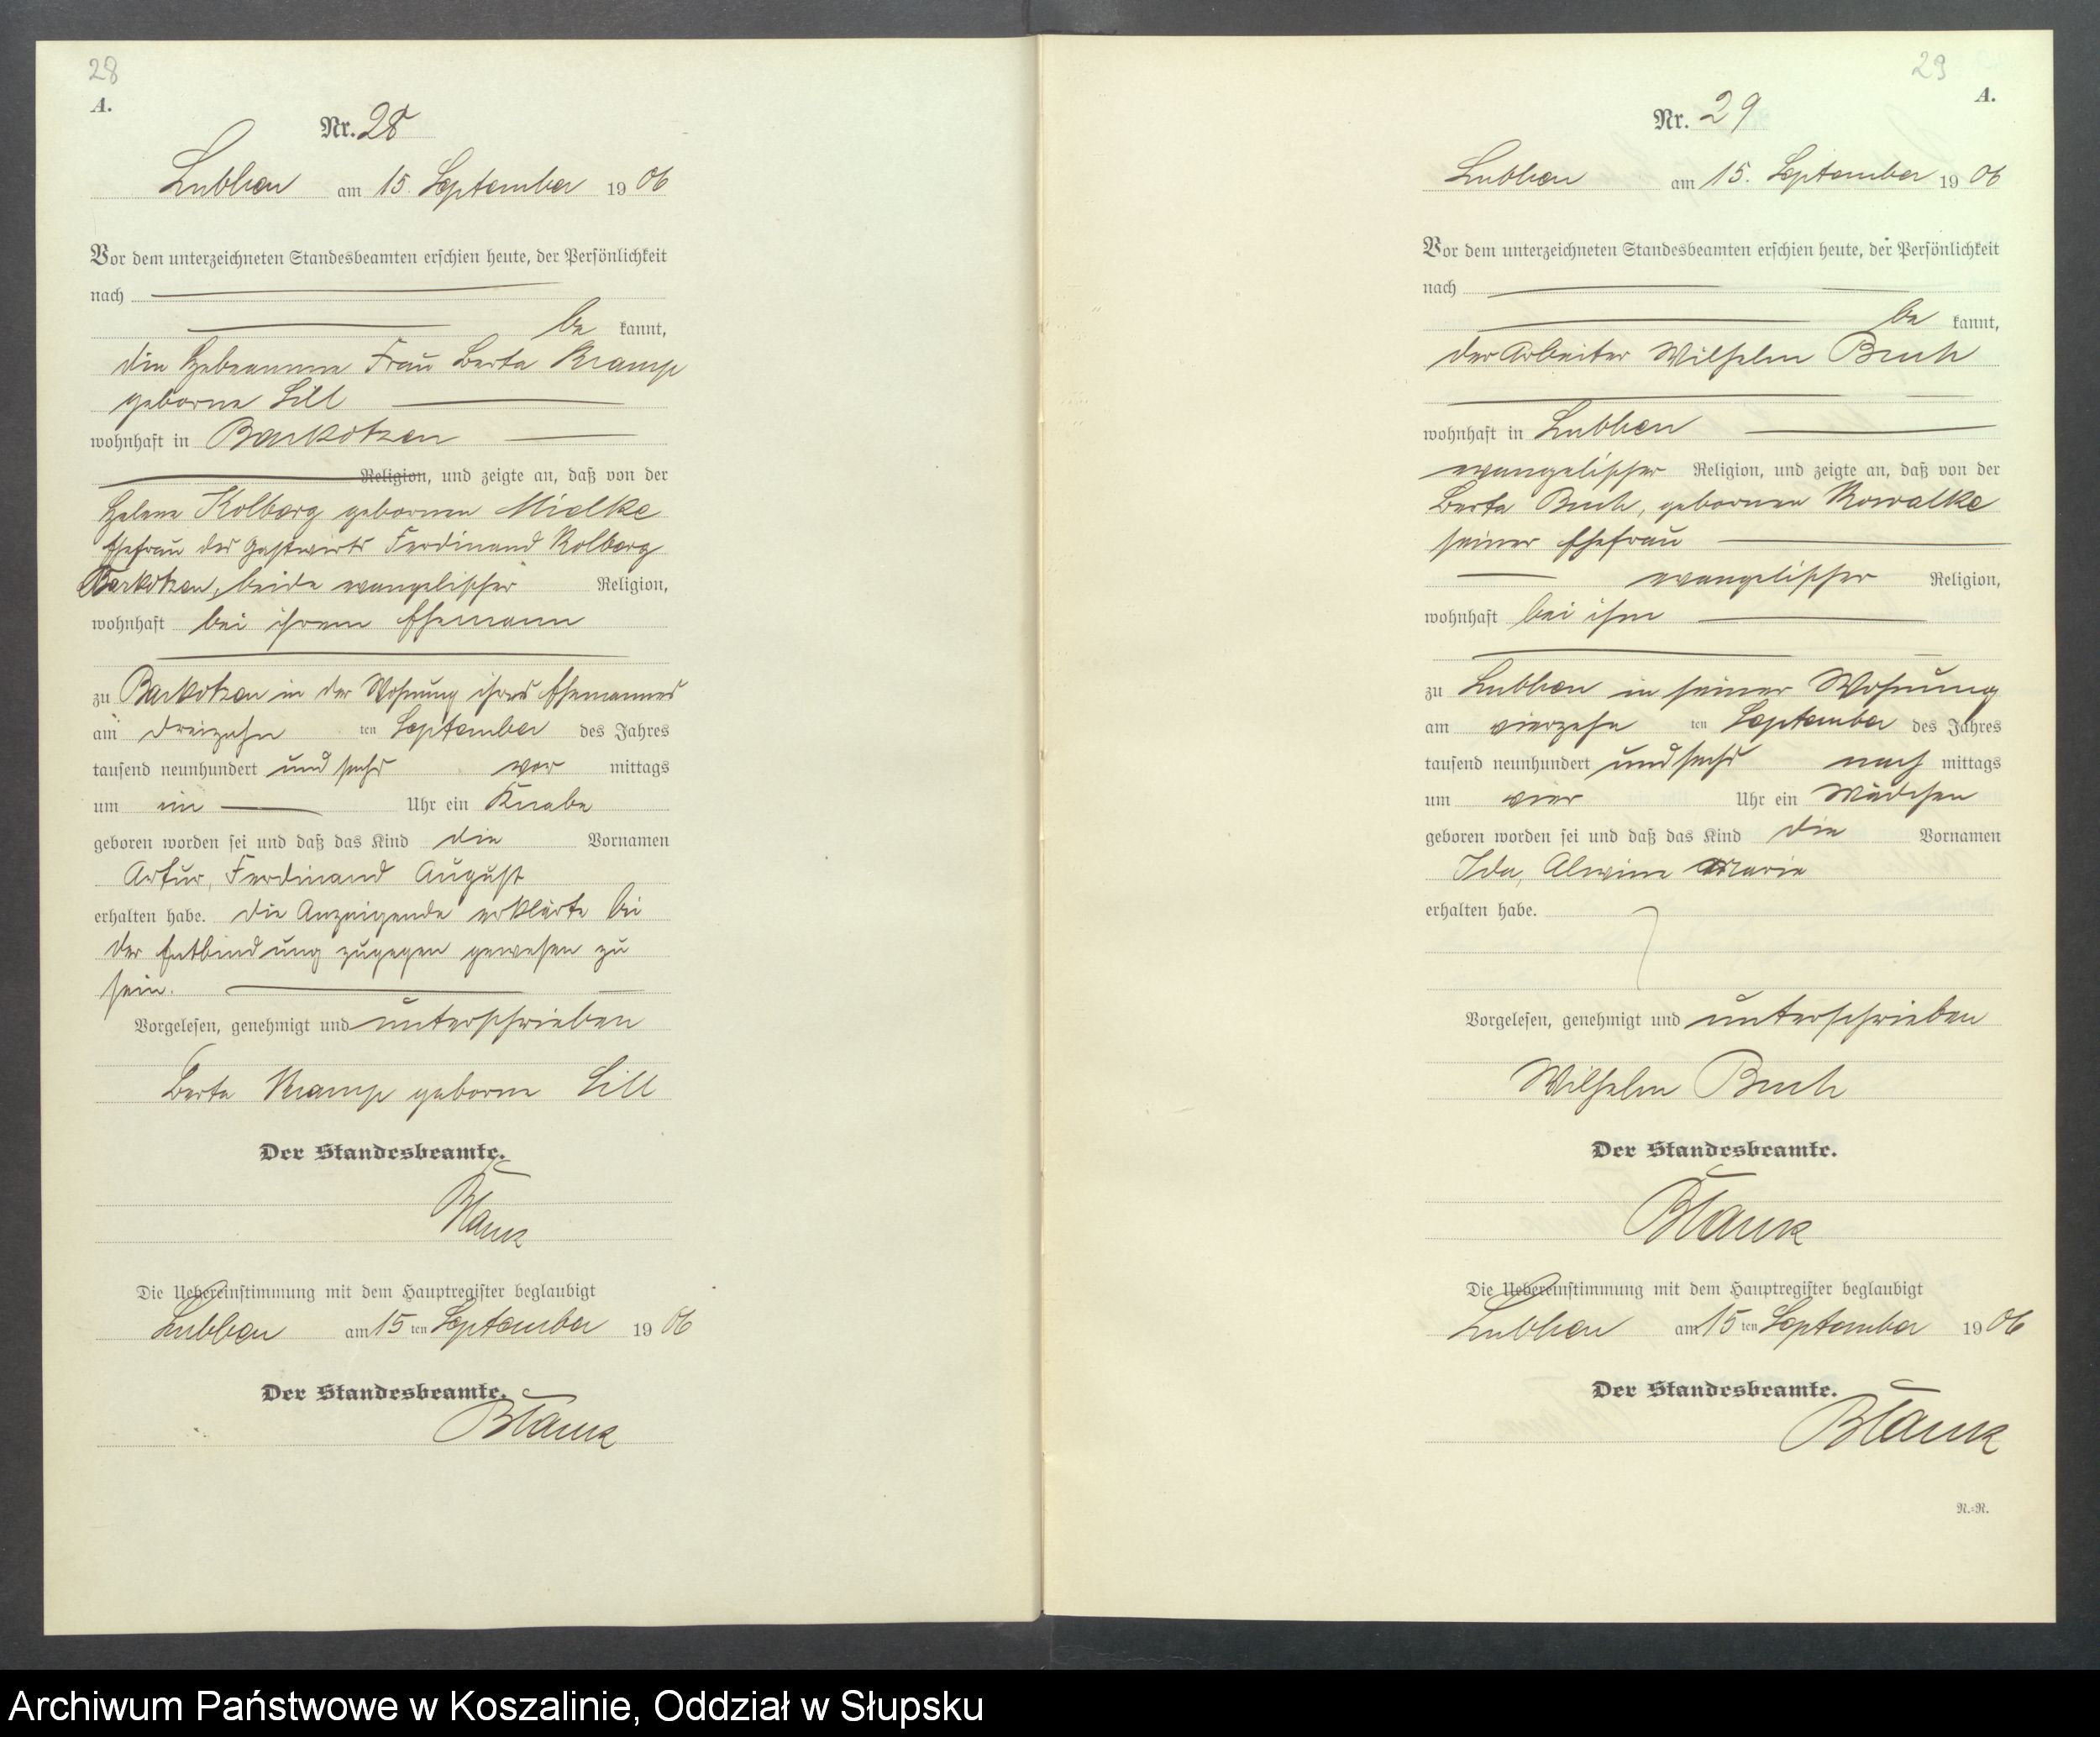 28
A.
Nr. 28
Lubben am 15. September 1906
Vor dem unterzeichneten Standesbeamten erschien heute, der Persönlichkeit
nach
be kannt,
die Hebeamme Frau Berta Kramp
geborne Sill
wohnhaft in Barkotzen
Religion, und zeigte an, daß von der
Helene Kolberg gebornen Mielke
Ehefrau des Gastwirts Ferdinand Kolberg
Barkotzen, beide evangelischer Religion,
wohnhaft bei ihrem Ehemann
zu Barkotzen in der Wohnung ihres Ehemannes
am dreizehn ten September des Jahres
tausend neunhundert und sechs vor mittags
um ein Uhr ein Knabe
geboren worden sei und daß das Kind die Vornamen
Artur, Ferdinand August
erhalten habe. die Anzeigende erklärte bei
der Entbindung zugegen gewesen zu
sein.
Vorgelesen, genehmigt und unterschrieben
Berta Kramp geborne Sill
Der Standesbeamte.
Blank
Die Uebereinstimmung mit dem Hauptregister beglaubigt
Lubben am 15 ten September 1906
Der Standesbeamte.
Blank
29
A.
Nr. 29
Lubben am 15. September 1906
Vor dem unterzeichneten Standesbeamten erschien heute, der Persönlichkeit
nach
be kannt,
der Arbeiter Wilhelm Buch
wohnhaft in Lubben
evangelischer Religion, und zeigte an, daß von der
Berta Buch, gebornen Kowalke
seiner Ehefrau
evangelischer Religion,
wohnhaft bei ihm
zu Lubben in seiner Wohnung
am vierzehn ten September des Jahres
tausend neunhundert und sechs nach mittags
um vier Uhr ein Mädchen
geboren worden sei und daß das Kind die Vornamen
Ida, Alwine Marie
erhalten habe.
Vorgelesen, genehmigt und unterschrieben
Wilhelm Buch
Der Standesbeamte.
Blank
Die Uebereinstimmung mit dem Hauptregister beglaubigt
Lubben am 15 ten September 1906
Der Standesbeamte.
Blank
R.-R.
Archiwum Państwowe w Koszalinie, Oddział w Słupsku